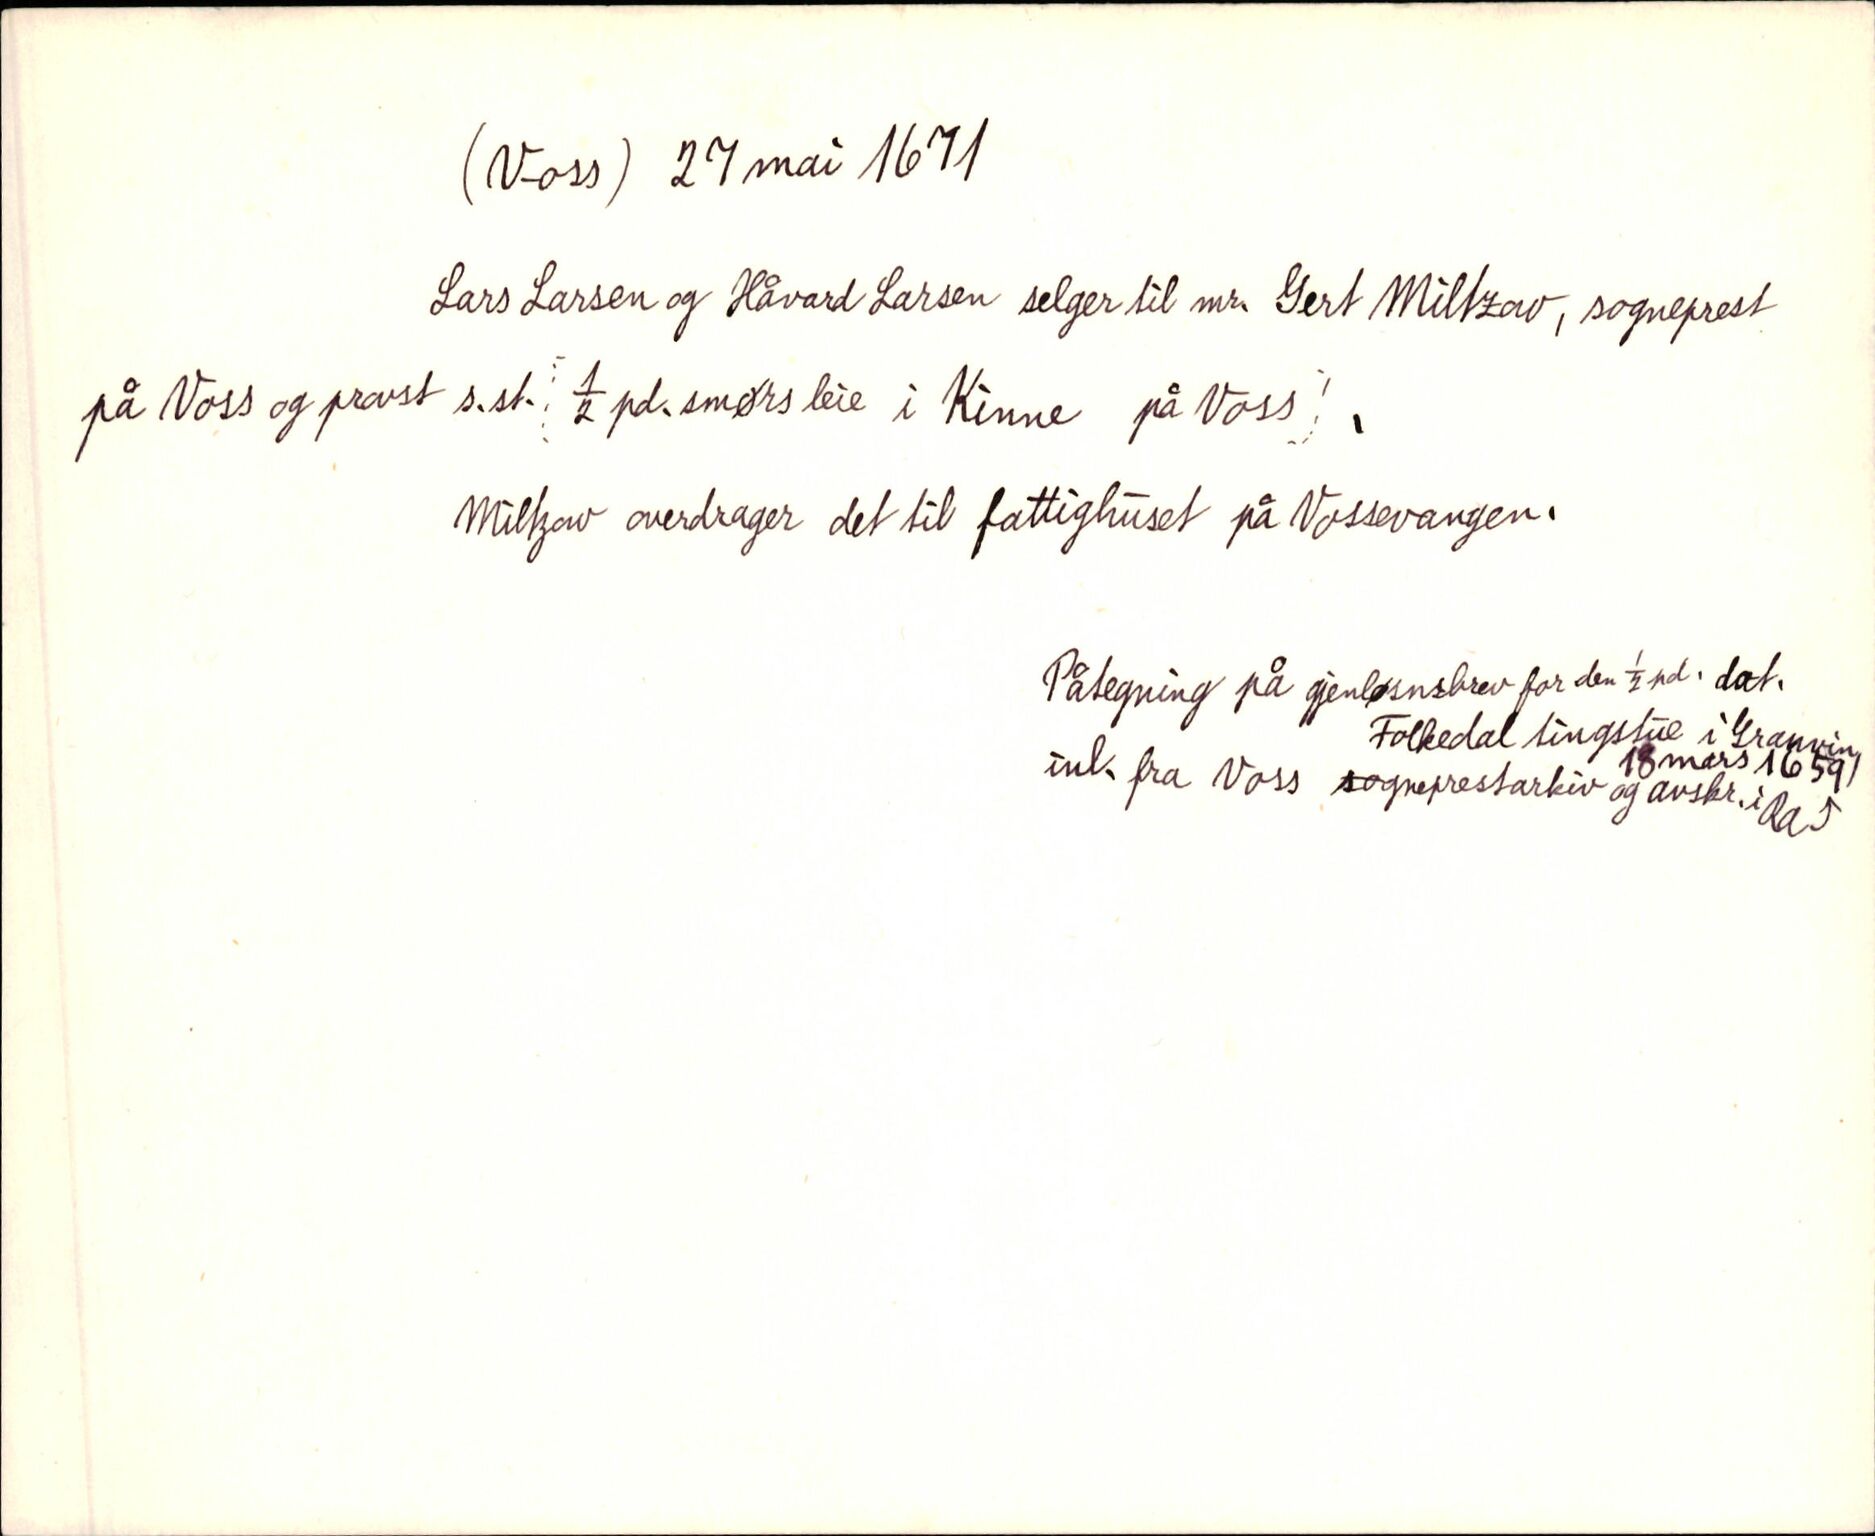 (Voss) 27 mai 1671
Lars Larsen og Håvard Larsen selger til mr. Gert Miltzov, sogneprest
på Voss og provst s.st. ½ pd. smørs leie i Kinne på Voss.
Miltzov overdrager det til fattighuset på Vossevangen.
Påtegning på gjenløsnsbrev for den ½ pd. dat.
Folkedal tingstue i Granvin
18 mars 1659
inl. fra Voss sogneprestarkiv og avskr. i Ra